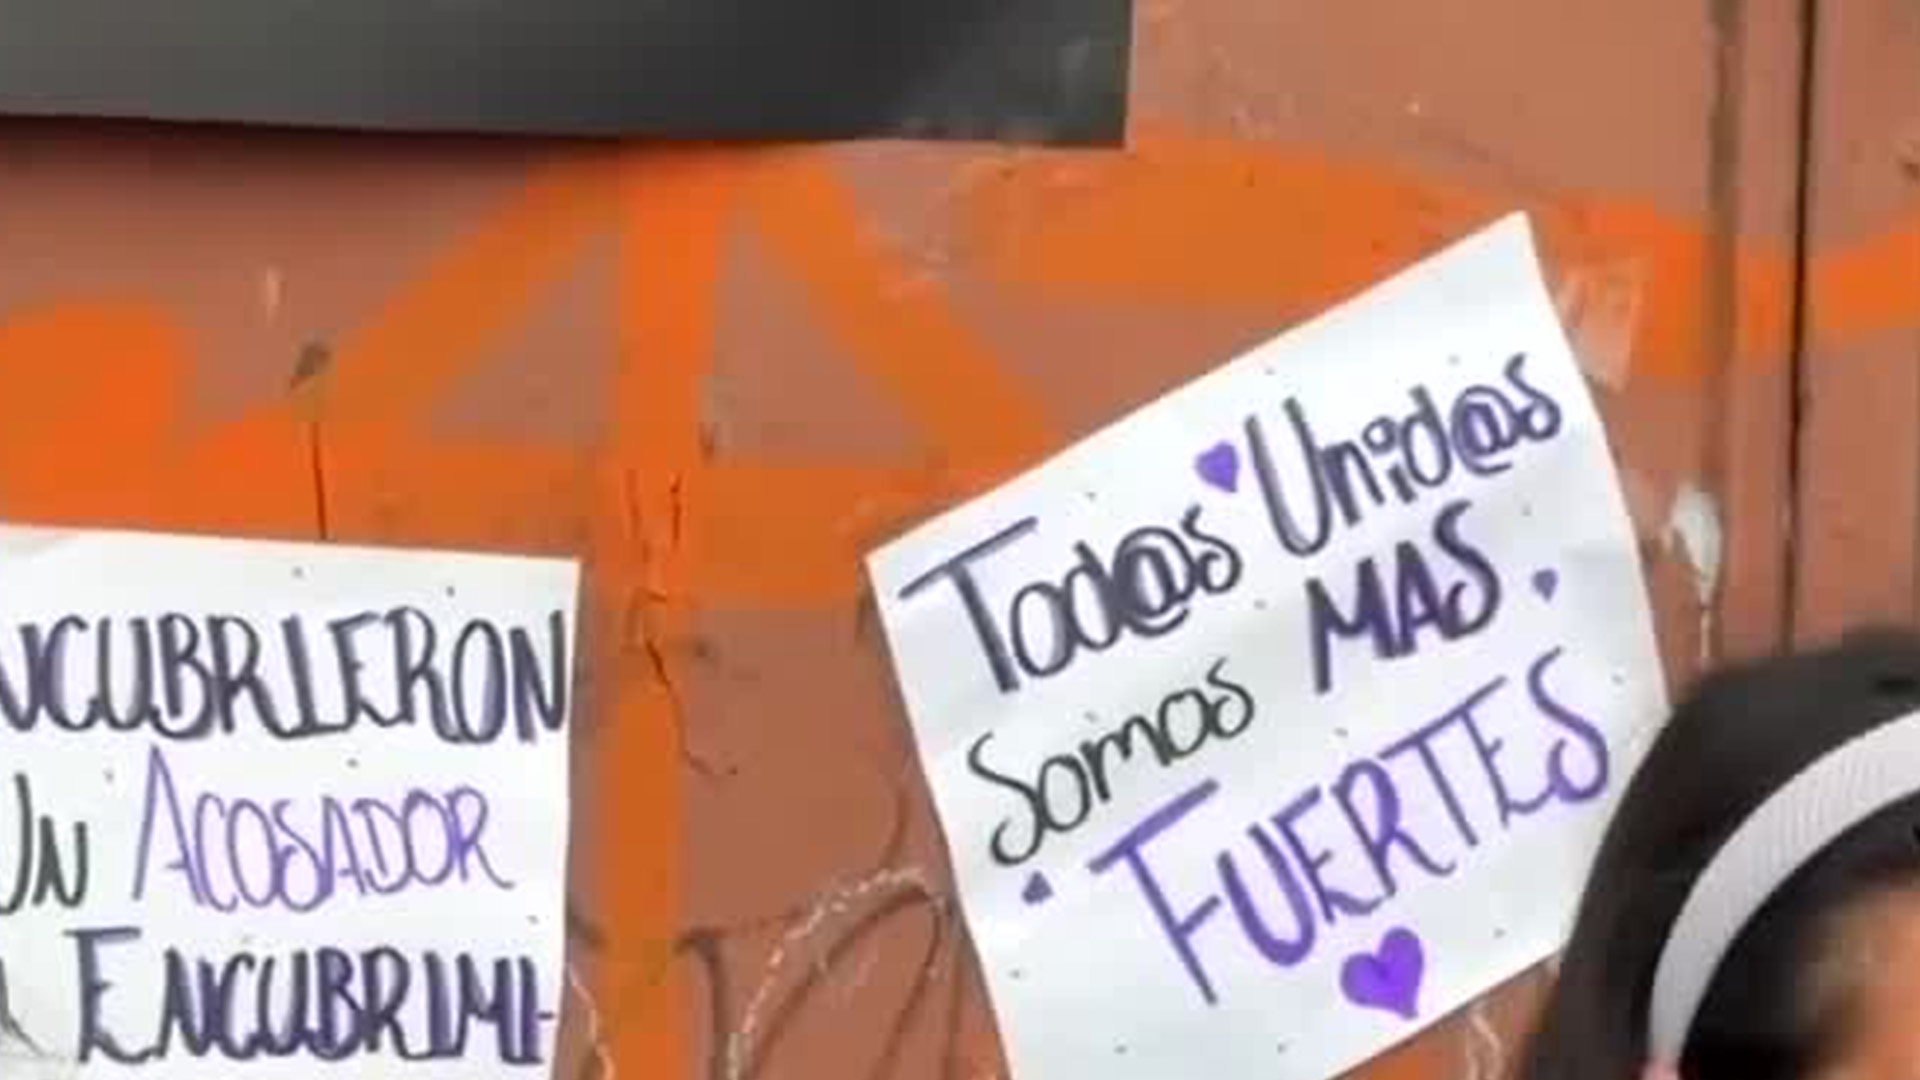 NCUBRIERON
UN ACOSADOR
ENCUBRIMI-
Tod@s Unid@s
Somos MAS
FUERTES